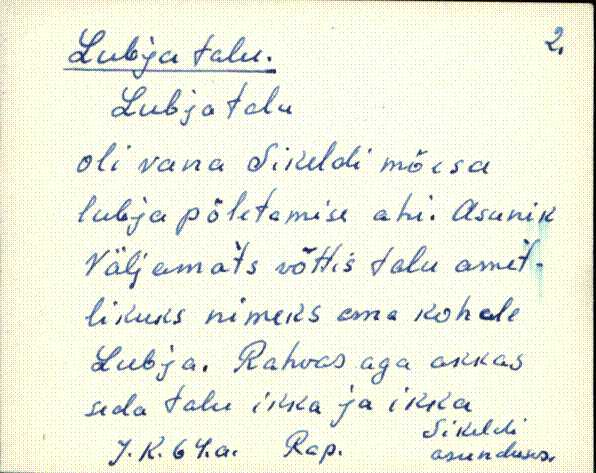 Lubja talu. 2.
Lubja talu
oli vana Sikeldi mõisa
lubja põletamise ahi. Asunik
Väljamäts võttis talu amet-
likuks nimeks oma kohale
Lubja. Rahvas aga akkas
seda talu ikka ja ikka
J. K. 64.a. Rap. Sikeldi
asunduses.